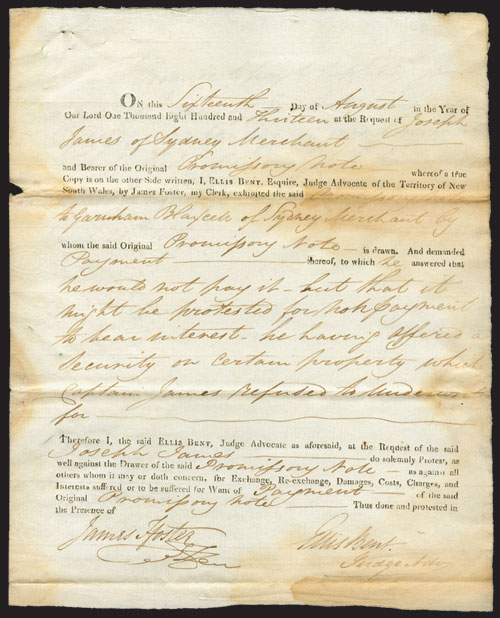 ON this Sixteenth Day of August in the Year of
Our Lord One Thousand Eight Hundred and Thirteen at the Request of Joseph
James of Sydney Merchant
and Bearer of the Original Promissory Note whereof a true
Copy is on the other Side written, I, ELLIS BENT, Esquire, Judge Advocate of the Territory of New
South Wales, by James Foster, my Clerk, exhibited the said
to Garnham Blaxcell of Sydney Merchant by
whom the said Original Promissory Note is drawn. And demanded
Payment thereof, to which he answered that
he would not pay it - but that it
might be protested for non payment
to bear interest - he having offered a
security on certain property which
Captain James refused to
for
Therefore I, the said ELLIS BENT, Judge Advocate as aforesaid, at the Request of the said
Joseph James do solemnly Protest, as
well against the Drawer of the said Promissory Note as against all
others whom it may or doth concern, for Exchange, Re-exchange, Damages, Costs, Charges, and
Interests suffered or to be suffered for Want of Payment of the said
Original Promissory Note Thus done and protested in
the Presence of
James Foster
Ellis Bent.
Judge Adv